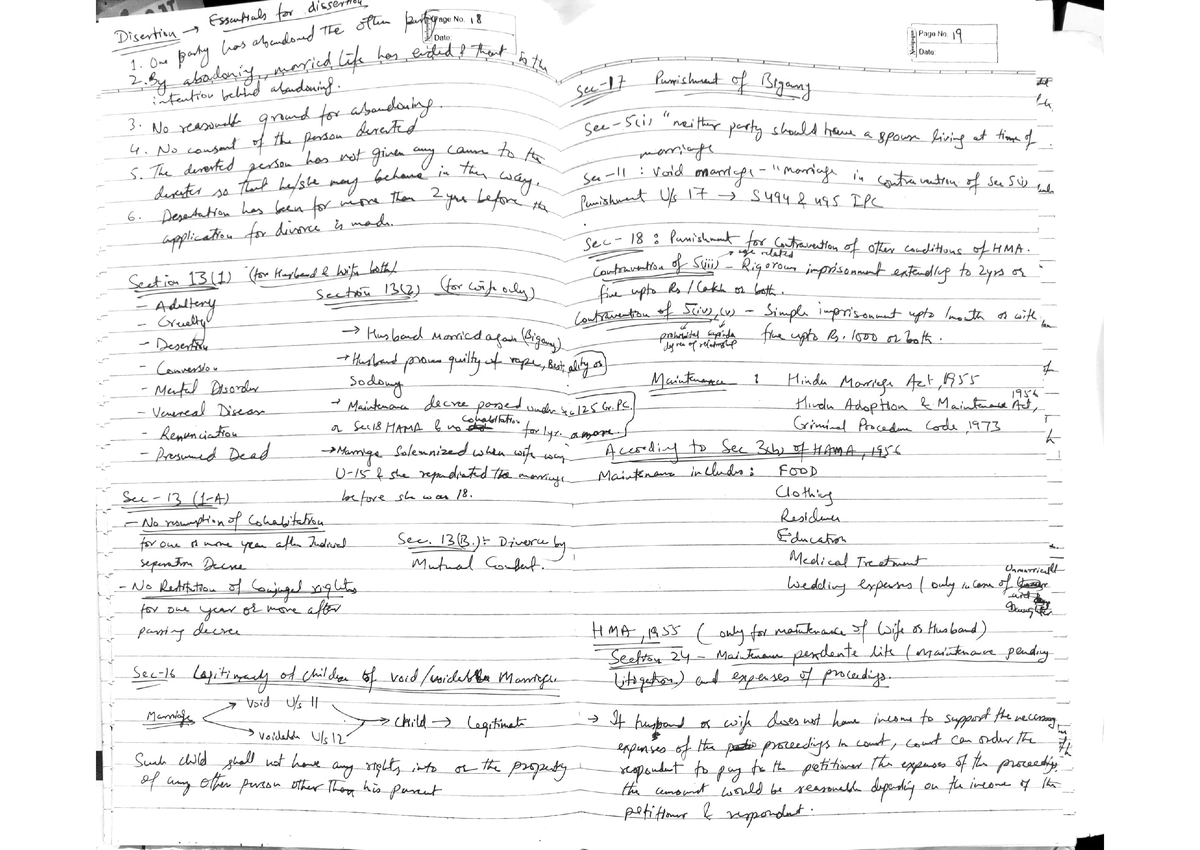 Page No. 18
Date:
Disertion → Essentials for dissertion
1. One party has abandoned the other party
2. By abadoning, married life has ended & that is the
intention behind abandoning.
3. No reasonable ground for abandoning.
4. No consent of the person deserted
5. The deserted person has not given any cause to the
deserter so that he/she may behave in this way.
6. Desertation has been for more than 2 yrs before the
application for divorce is made.
Section 13(1) (for Husband & Wife both)
- Adultery
- Cruelty
- Desertion
- Conversion
- Mental Disorder
- Venereal Disease
- Renunciation
- Presumed Dead
Section 13(2) (for wife only)
→ Husband Married again (Bigamy)
→ Husband proves guilty of rape, Bestiality or
Sodomy
→ Maintenance decree passed under sec 125 Cr.P.C.
or Sec 18 HAMA & no cohabitation for 1 yr. or more
→ Marriage Solemnized when wife was
U-15 & she repudiated the marriage
before she was 18.
Sec - 13 (1-A)
- No resumption of Cohabitation
for one or more year after Judicial
separation Decree
- No Restitution of Conjugal rights
for one year or more after
passing decree
Sec. 13(B) :- Divorce by
Mutual Consent.
Sec-16 Legitimacy of children of void/voidable Marriage
Marriage → Void U/s 11
→ Voidable U/s 12
→ Child → Legitimate
Such child shall not have any rights into or the property
of any other person other than his parent
Page No. 19
Date:
Sec-17 Punishment of Bigamy
Sec-5(i) "neither party should have a spouse living at time of
marriage
Sec-11 : Void marriage - "marriage in contravention of Sec 5(i)
Punishment U/s 17 → S 494 & 495 IPC
Sec-18 : Punishment for contravention of other conditions of HMA.
→ age related
Contravention of 5(iii) - Rigorous imprisonment extending to 2yrs or
fine upto Rs 1 lakh or both.
Contravention of 5(iv), (v) - Simple imprisonment upto 1 month or with
prohibited sapinda
degree of relationship
fine upto Rs. 1000 or both.
Maintenance : Hindu Marriage Act, 1955
Hindu Adoption & Maintenance Act, 1956
Criminal Procedure Code, 1973
According to Sec 3(b) of HAMA, 1956
Maintenance includes: FOOD
Clothing
Residence
Education
Medical Treatment
Wedding expenses (only in case of Unmarried
Daughter
HMA, 1955 (only for maintenance of Wife or Husband)
Section 24 - Maintenance pendente lite (maintenance pending
litogation) and expenses of proceedings.
→ If husband or wife does not have income to support the necessary
expenses of the proceedings in court, court can order the
respondent to pay to the petitioner the expenses of the proceeding,
the amount would be reasonable depending on the income of the
petitioner & respondent.